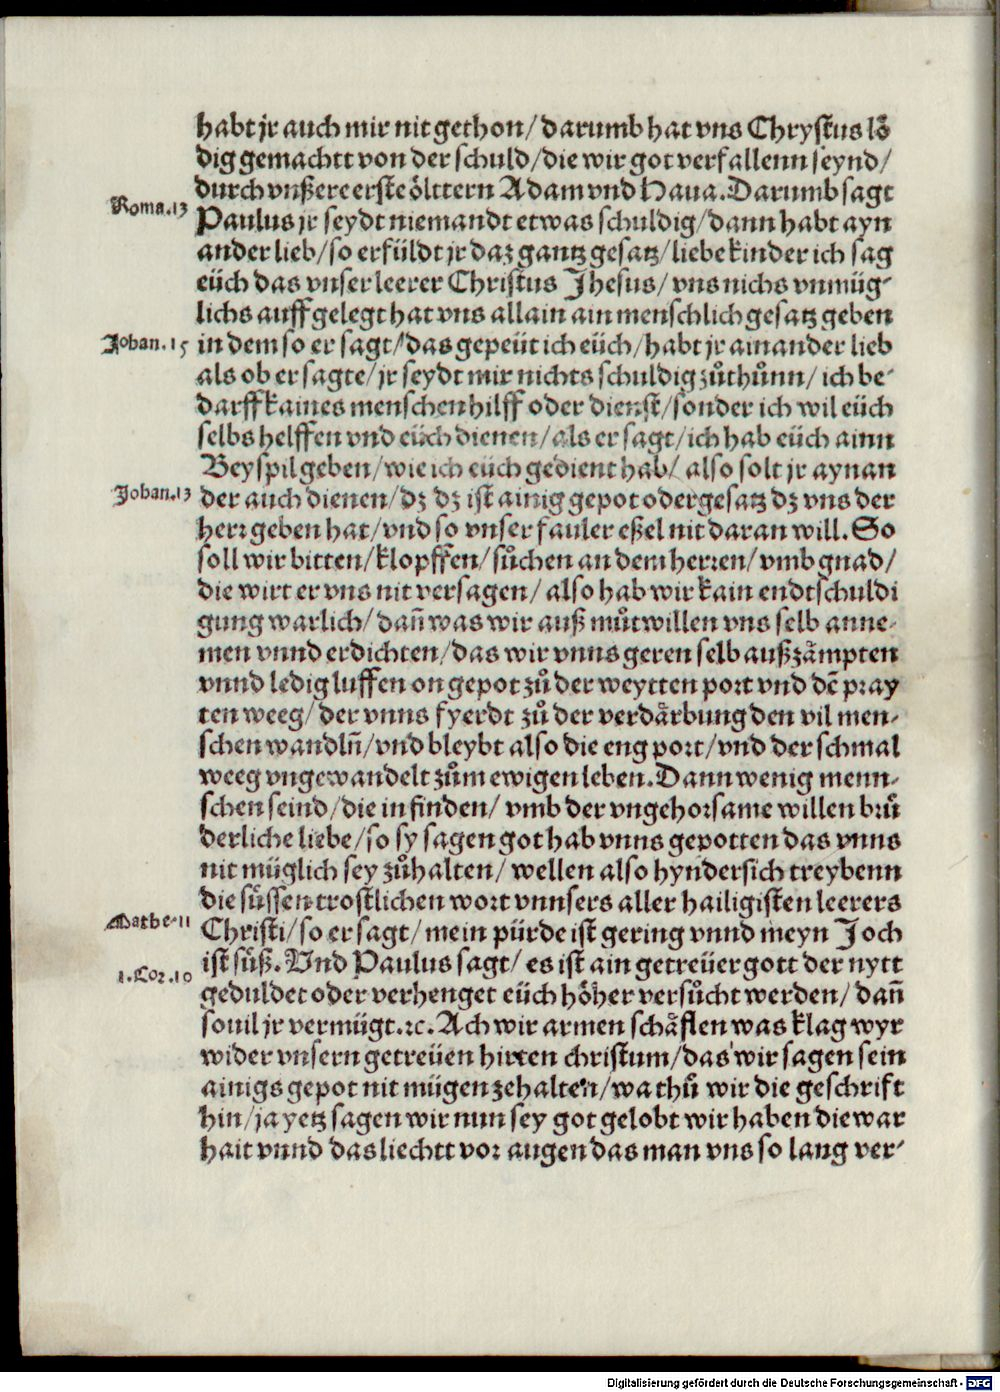 habt jr auch mir nit gethon/ darumb hat vns Chrystus lõ
dig gemachtt von der schuld/ die wir got verfallenn seynd/
durch vnßere erste ölttern Adam vnd Haua. Darumb sagt
Roma.13
Paulus jr seydt niemandt etwas schuldig/ dann habt ayn
ander lieb/ so erfüldt jr daz gantz gesatz/ liebe kinder ich sag
eüch das vnser leerer Christus Jhesus/ vns nichs vnmüg-
lichs auff gelegt hat vns allain ain menschlich gesatz geben
Johan.15
in dem so er sagt/ das gepeüt ich eüch/ habt jr ainander lieb
als ob er sagte/ jr seydt mir nichts schuldig zůthůnn/ ich be-
darff kaines menschen hilff oder dienst/ sonder ich wil eüch
selbs helffen vnd eüch dienen/ als er sagt/ ich hab eüch ainn
Beyspil geben/ wie ich eüch gedient hab/ also solt jr aynan
Johan.13
der auch dienen/ dz dz ist ainig gepot oder gesatz dz vns der
herr geben hat/ vnd so vnser fauler eßel nit daran will. So
soll wir bitten/ klopffen/ sůchen an dem herren/ vmb gnad/
die wirt er vns nit versagen/ also hab wir kain endtschuldi
gung warlich/ dañ was wir auß můtwillen vns selb anne-
men vnnd erdichten/ das wir vnns geren selb außzämpten
vnnd ledig luffen on gepot zů der weytten port vnd dẽ pray
ten weeg/ der vnns fyerdt zů der verdärbung den vil men-
schen wandlñ/ vnd bleybt also die eng port/ vnd der schmal
weeg vngewandelt zům ewigen leben. Dann wenig menn-
schen seind/ die in finden/ vmb der vngehorsame willen brů
derliche liebe/ so sy sagen got hab vnns gepotten das vnns
nit müglich sey zůhalten/ wellen also hyndersich treybenn
die süssen trostlichen wort vnnsers aller hailigisten leerers
Mathe.11
Christi/ so er sagt/ mein pürde ist gering vnnd meyn Joch
1.Cor.10
ist süß. Vnd Paulus sagt/ es ist ain getreüer gott der nytt
geduldet oder verhenget eüch höher versůcht werden/ dañ
souil jr vermügt.ꝛc. Ach wir armen schäflen was klag wyr
wider vnsern getreüen hirten christum/ das wir sagen sein
ainigs gepot nit mügen zehalten/ wa thů wir die geschrift
hin/ ja yetz sagen wir nun sey got gelobt wir haben die war
hait vnnd das liechtt vor augen das man vns so lang ver-
Digitalisierung gefördert durch die Deutsche Forschungsgemeinschaft - DFG